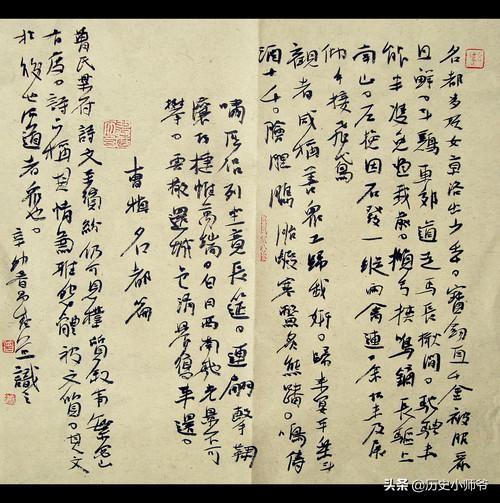 名都多妖女京洛出少年。寶劍直千金被服麗
且鮮。斗鷄東郊道走馬長楸間。馳騁未
能半雙兔過我前。攬弓捷鳴鏑長驅上
南山。左挽因右發一縱兩禽連。余巧未及展
仰手接飛鳶
觀者咸稱善衆工歸我妍。歸来宴平樂
酒十千。膾鯉臇胎鰕寒鱉炙熊蹯。鳴儔
嘯匹侣列坐竟長筵。連翩擊鞠
壤巧捷惟萬端。白日西南馳光景不可
攀。雲散還城邑清晨復来還。
曹植名都篇
曹氏府詩文繽紛仍可見樸質敘事無
古風。詩品稱其情兼雅怨體被文質。其文
於後世者也。識之
头条 @历史小师爷